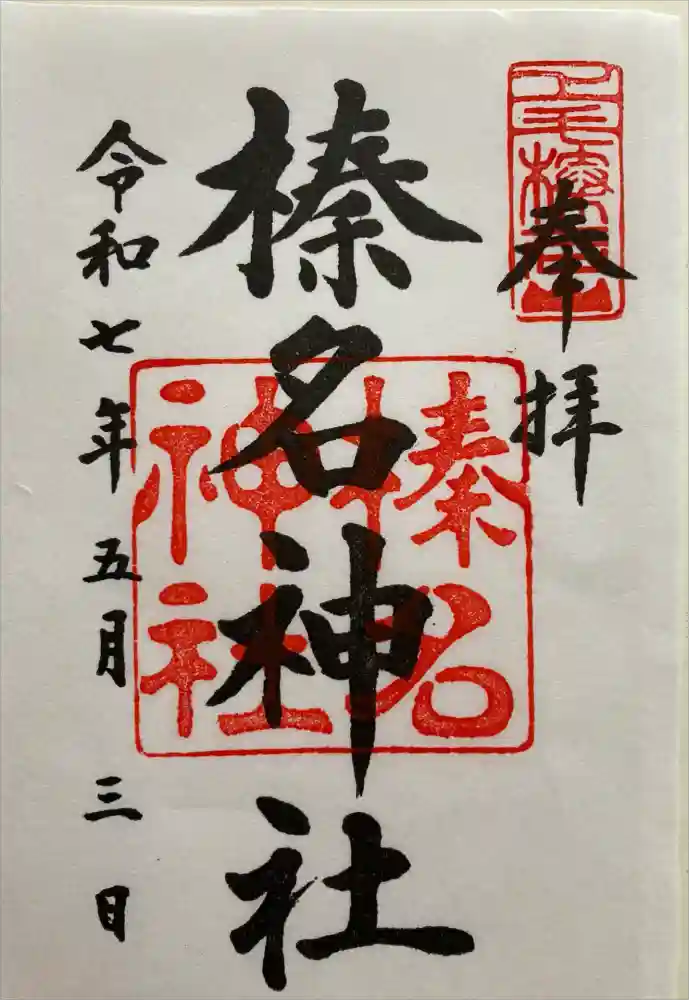 奉拝
榛名神社
榛名
神社
令和七年五月三日